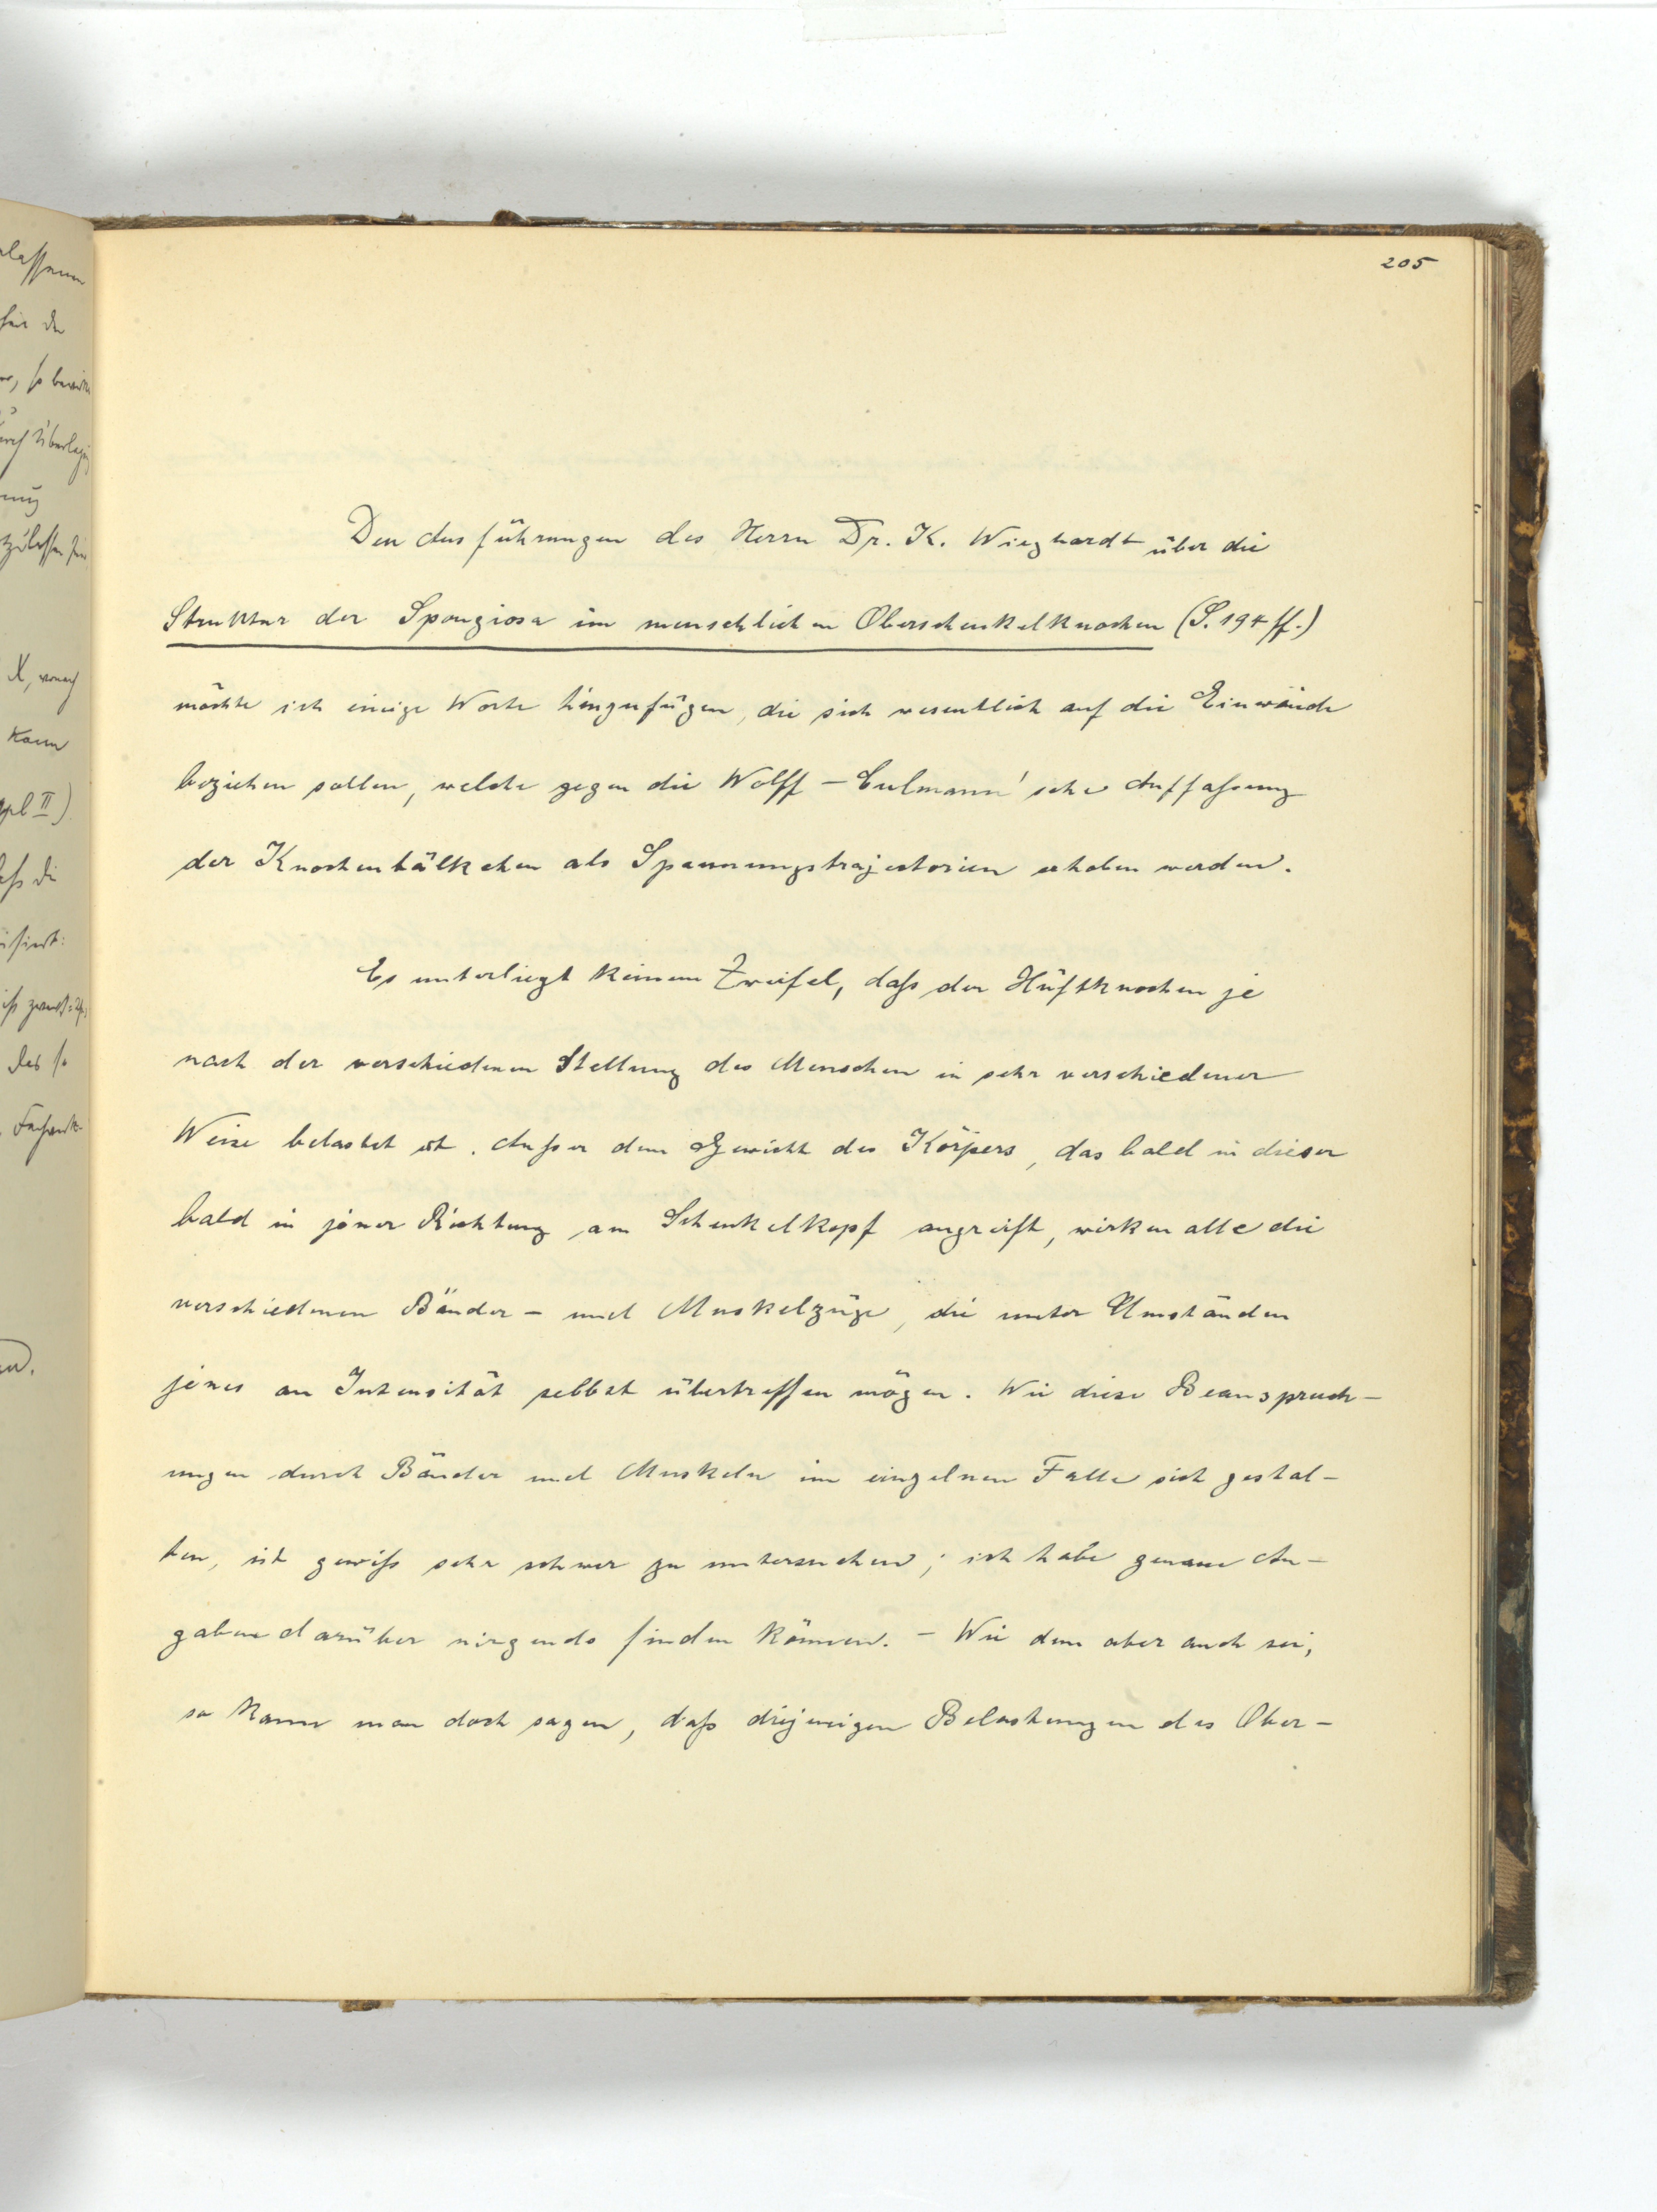 205
Den Ausführungen des Herrn Dr. K. Wieghardt über die
Struktur der Spongiosa im menschlichen Oberschenkelknochen (S. 194 ff.)
möchte ich einige Worte hinzufügen, die sich wesentlich auf die Einwände
beziehen sollen, welche gegen die Wolff-Culmann'sche Auffaßung
der Knochenbälkchen als Spannungstrajectorien erhoben werden.
Es unterliegt keinem Zweifel, daß der Hüftknochen je
nach der verschiedenen Stellung des Menschen in sehr verschiedener
Weise belastet ist. Außer dem Gewicht des Körpers, das bald in dieser
bald in jener Richtung am Schenkelkopf angreift, wirken alle die
verschiedenen Bänder- und Muskelzüge, die unter Umständen
jenes an Intensität selbst übertreffen mögen. Wie diese Beanspruch-
ungen durch Bänder und Muskeln im einzelnen Falle sich gestal-
ten, ist gewiß sehr schwer zu untersuchen; ich habe genaue An-
gaben darüber nirgends finden können. - Wie dem aber auch sei,
so kann man doch sagen, daß diejenigen Belastungen des Ober-